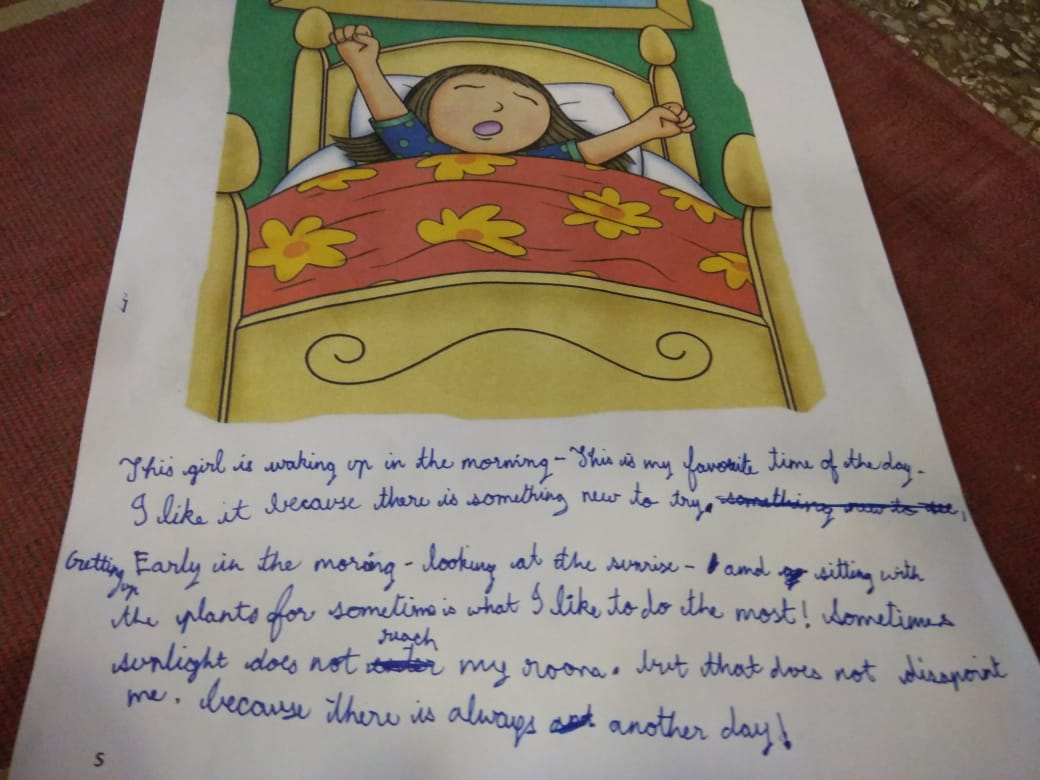 This girl is waking up in the morning - This is my favorite time of the day -
I like it because there is something new to try. something new to see,
Getting up Early in the morning - looking at the sunrise - and sitting with
the plants for sometime is what I like to do the most! Sometimes
sunlight does not reach my room. but that does not disapoint
me. because there is always another day!
5